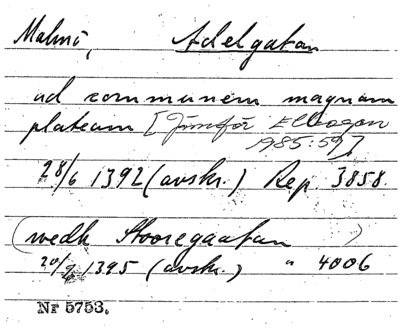 Malmö, Adelgatan
ad communem magnam
plateam [Jämför Ellbogen
1985:59].
28/6 1392 (avskr.) Rep. 3858.
(wedh Stooregaatan )
20/9 1395 (avskr.) " 4006
Nr 5753.